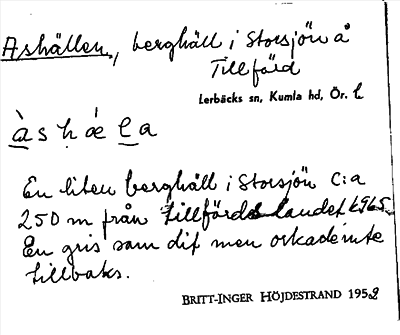 Ashällen, berghäll i Storsjön å
Tillfärd
Lerbäcks sn, Kumla hd, Ör. l
à s ḥ ǽ l a
En liten berghäll i Storsjön c:a
250 m från Tillfärds landet
En gris sam dit men orkade inte
tillbaks.
BRITT-INGER HÖJDESTRAND 1952